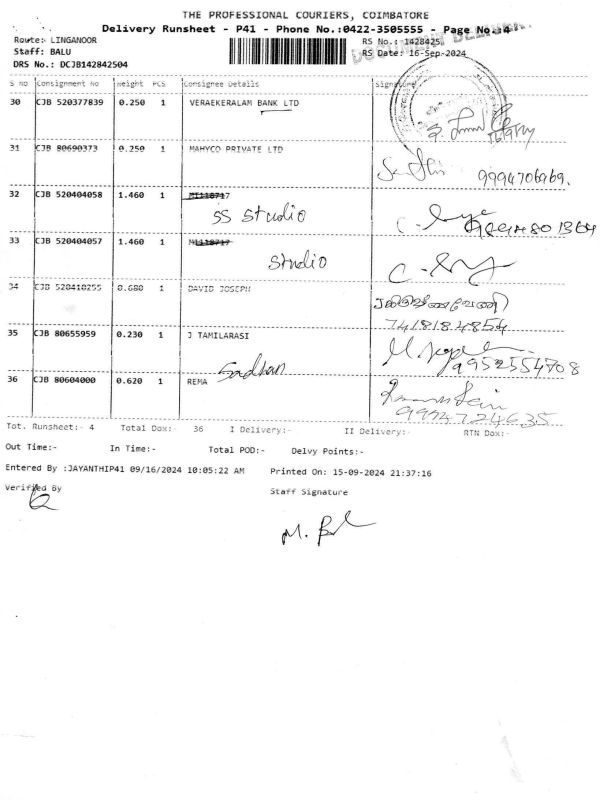 THE PROFESSIONAL COURIERS, COIMBATORE
Delivery Runsheet - P41 - Phone No.:0422-3505555 - Page No.:4
Route: LINGANOOR RS No.: 1428425
Staff: BALU RS Date: 16-Sep-2024
DRS No.: DCJB142842504
S NO Consignment No Weight PCS Consignee Details Signature
30 CJB 520377839 0.250 1 VERAEKERALAM BANK LTD
31 CJB 80690373 0.250 1 MAHYCO PRIVATE LTD
9994706969.
32 CJB 520404058 1.460 1 MI118717
SS Studio
33 CJB 520404057 1.460 1 MI118717
Studio
34 CJB 520418255 0.680 1 DAVID JOSEPH
7418184854
35 CJB 80655959 0.230 1 J TAMILARASI
9952554708
36 CJB 80604000 0.620 1 REMA Sadhan
9994724635
Tot. Runsheet:- 4 Total Dox:- 36 I Delivery:- II Delivery:- RTN Dox:-
Out Time:- In Time:- Total POD:- Delvy Points:-
Entered By :JAYANTHIP41 09/16/2024 10:05:22 AM Printed On: 15-09-2024 21:37:16
Verified By Staff Signature